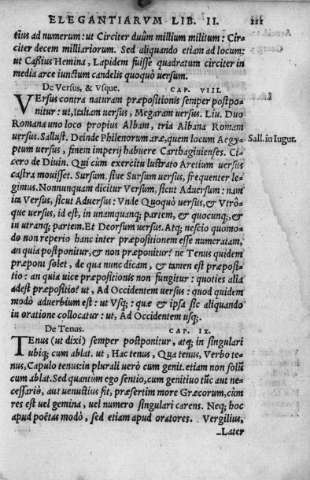 ELEGANTIARVM LIB. II. 221
tius ad numerum: ut Circiter duûm millium militum: Cir-
citer decem milliariorum. Sed aliquando etiam ad locum:
ut Caßius Hemina, Lapidem fuisse quadratum circiter in
media arce iunctum candelis quoquò uersum.
De Versus, & Vsque. CAP. VIII.
VErsus contra naturam præpositionis semper postpo-
nitur: ut, Italiam uersus, Megaram uersus. Liu. Duo
Romana uno loco propius Albam, tria Albana Romam
uersus. Sallust. Deinde Philenorum aræ, quem locum Aegy-
ptum uersus, finem imperij habuere Carthaginienses. Ci-
cero de Diuin. Qui cum exercitu lustrato Aretium uersus
castra mouisset. Sursum. siue Sursum uersus, frequenter le-
gimus. Nonnunquam dicitur Versum, sicut Aduersum: nam
in Versus, sicut Aduersus: Vnde Quoquò uersus, & Vtrô-
que uersus, id est, in unamquanq; partem, & quocunq;, &
in utranq; partem. Et Deorsum uersus. Atq; nescio quomo-
do non reperio hanc inter præpositionem esse numeratam,
an quia postponitur, & non præponitur? ne Tenus quidem
præponi solet, de qua nunc dicam, & tamen est præposi-
tio: an quia uice præpositionis non fungitur: quoties alia
adest præpositio? ut, Ad Occidentem uersus: quod quidem
modò aduerbium est: ut Vsq;: quæ & ipsa sic aliquando
in oratione collocatur: ut, Ad Occidentem usq;.
Sall. in Iugur.
De Tenus. CAP. IX.
TEnus (ut dixi) semper postponitur, atq; in singulari
ubiq; cum ablat. ut, Hac tenus, Qua tenus, Verbo te-
nus, Capulo tenus: in plurali uerò cum genit. etiam non solùm
cum ablat. Sed quantum ego sentio, cum genitiuo tûc aut ne-
cessariò, aut uenustius fit, præsertim more Græcorum, cùm
res est uel gemina, uel numero singulari carens. Neq; hoc
apud poëtas modò, sed etiam apud oratores. Vergilius,
Later